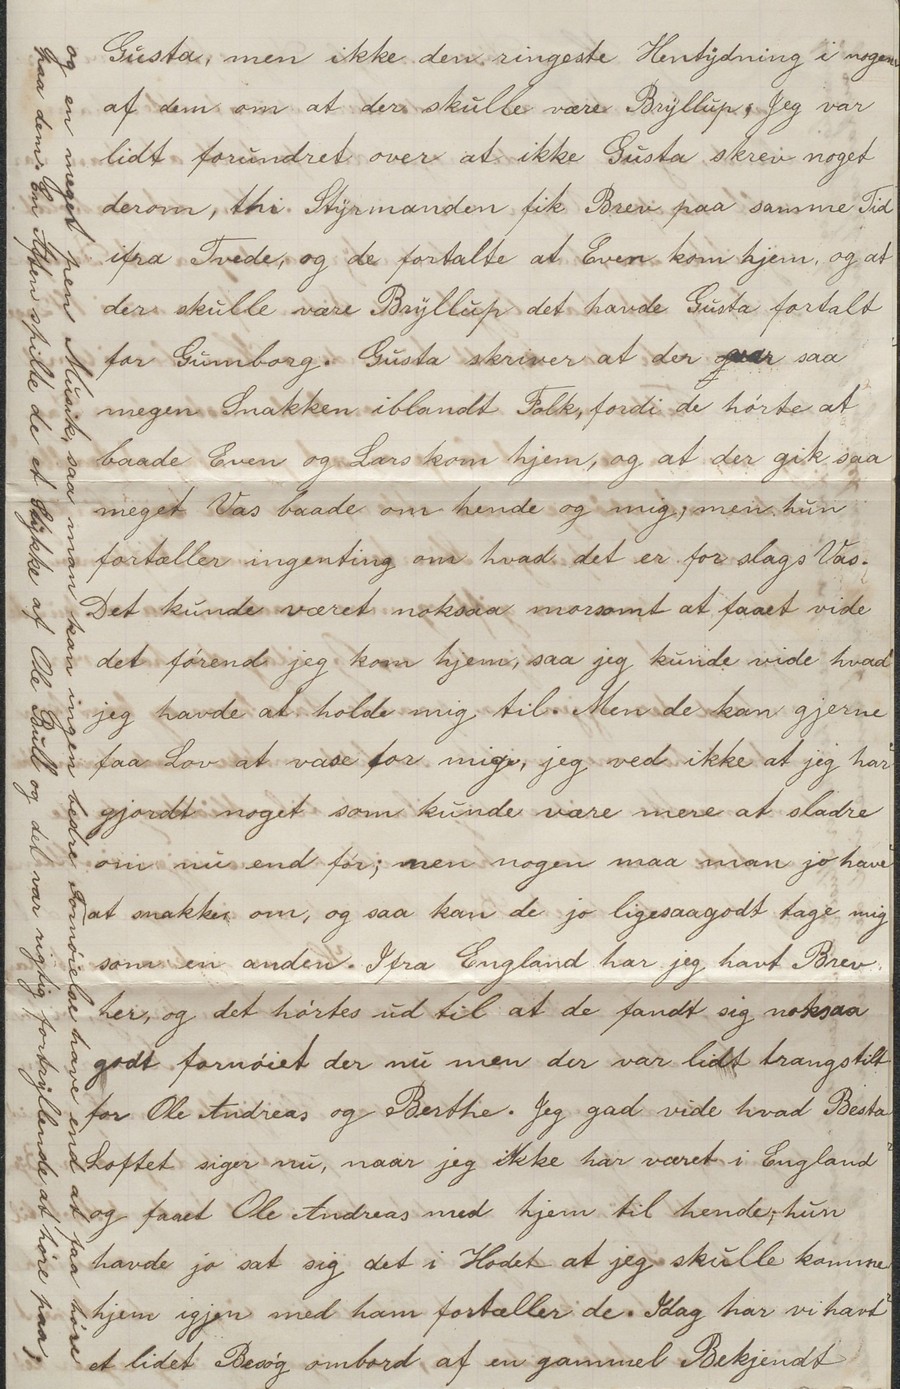 Gusta, men ikke den ringeste Hentydning i nogen
af dem om at der skulle være Bryllup; Jeg var
lidt forundret over at ikke Gusta skrev noget
derom, thi Styrmanden fik Brev paa samme Tid
ifra Tvede, og de fortalte at Even kom hjem, og at
der skulle være Bryllup det havde Gusta fortalt
for Gumborg. Gusta skriver at der saa
megen Snakken iblandt Folk, fordi de hørte at
baade Even og Lars kom hjem, og at der gik saa
meget Vas baade om hende og mig, men hun
fortæller ingenting om hvad det er for slags Vas.
Det kunde været noksaa morsomt at faaet vide
det førend jeg kom hjem, saa jeg kunde vide hvad
jeg havde at holde mig til. Men de kan gjerne
faa Lov at vase for mig, jeg ved ikke at jeg har
gjordt noget som kunde være mere at sladre
om nu end før; men nogen maa man jo have
at snakke om, og saa kan de jo ligesaagodt tage mig
som en anden. Ifra England har jeg havt Brev
her, og det hørtes ud til at de fandt sig noksaa
godt fornøiet der nu men der var lidt trangstilt
for Ole Andreas og Berthe. Jeg gad vide hvad Besta
Loftet siger nu, naar jeg ikke har været i England
og faaet Ole Andreas med hjem til hende, hun
havde jo sat sig det i Hodet at jeg skulle komme
hjem igjen med ham fortæller de. Idag har vi havt
et lidet Besøg ombord af en gammel Bekjendt
og en meget pen Musik, saa man kan ingen bedre Fornøielse have end at faa høre
paa dem. En Aften spilte de et Stykke af Ole Bull og det var rigtig fortryllende at høre paa;